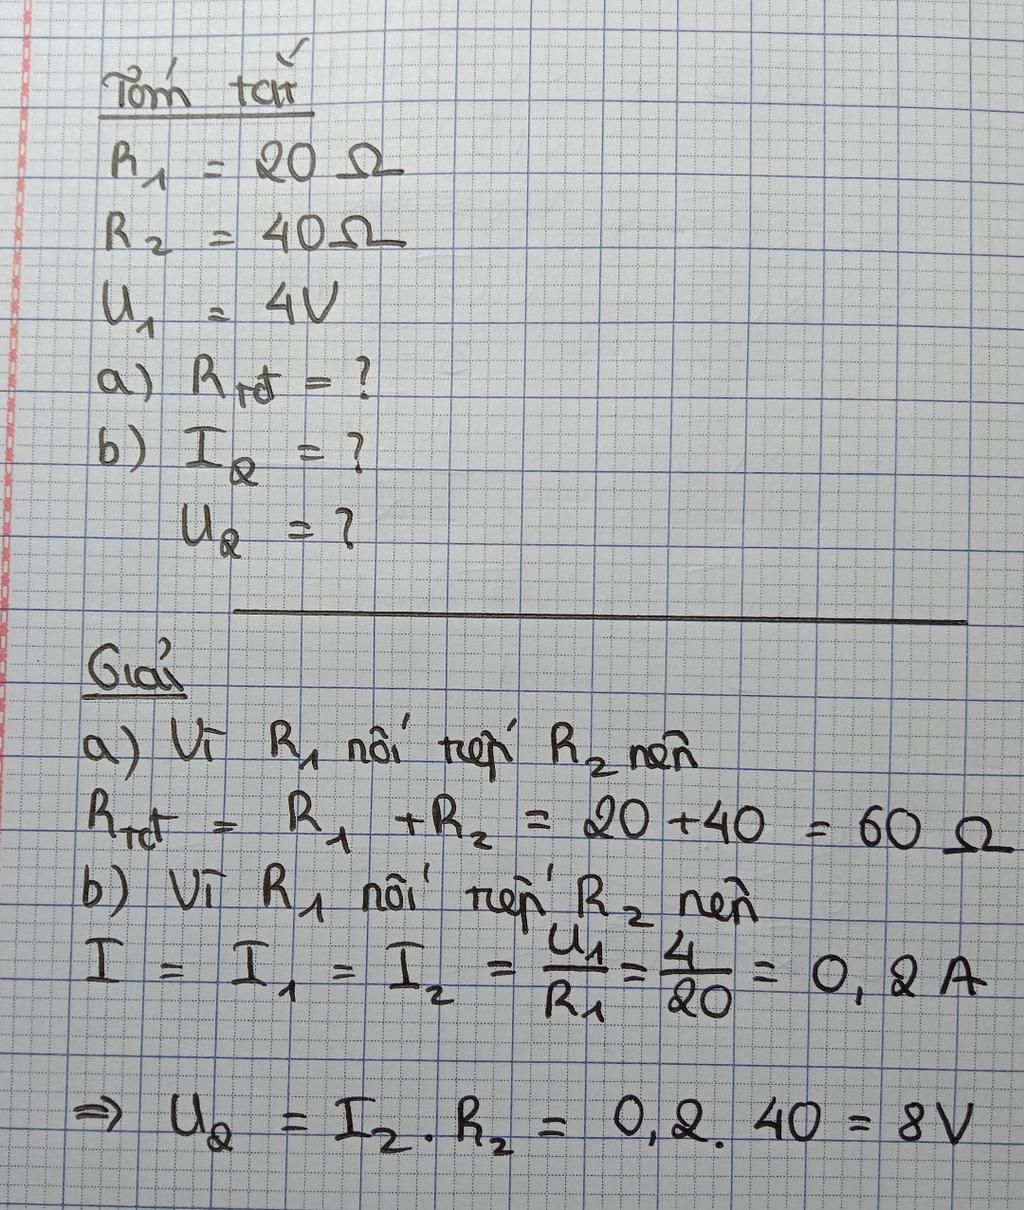 Tóm tắt
R₁ = 20 Ω
R₂ = 40 Ω
U₁ = 4V
a) Rtđ = ?
b) I₂ = ?
U₂ = ?
Giải
a) Vì R₁ nối tiếp R₂ nên
Rtđ = R₁ + R₂ = 20 + 40 = 60 Ω
b) Vì R₁ nối tiếp R₂ nên
I = I₁ = I₂ = U₁/R₁ = 4/20 = 0,2 A
⇒ U₂ = I₂ . R₂ = 0,2 . 40 = 8V